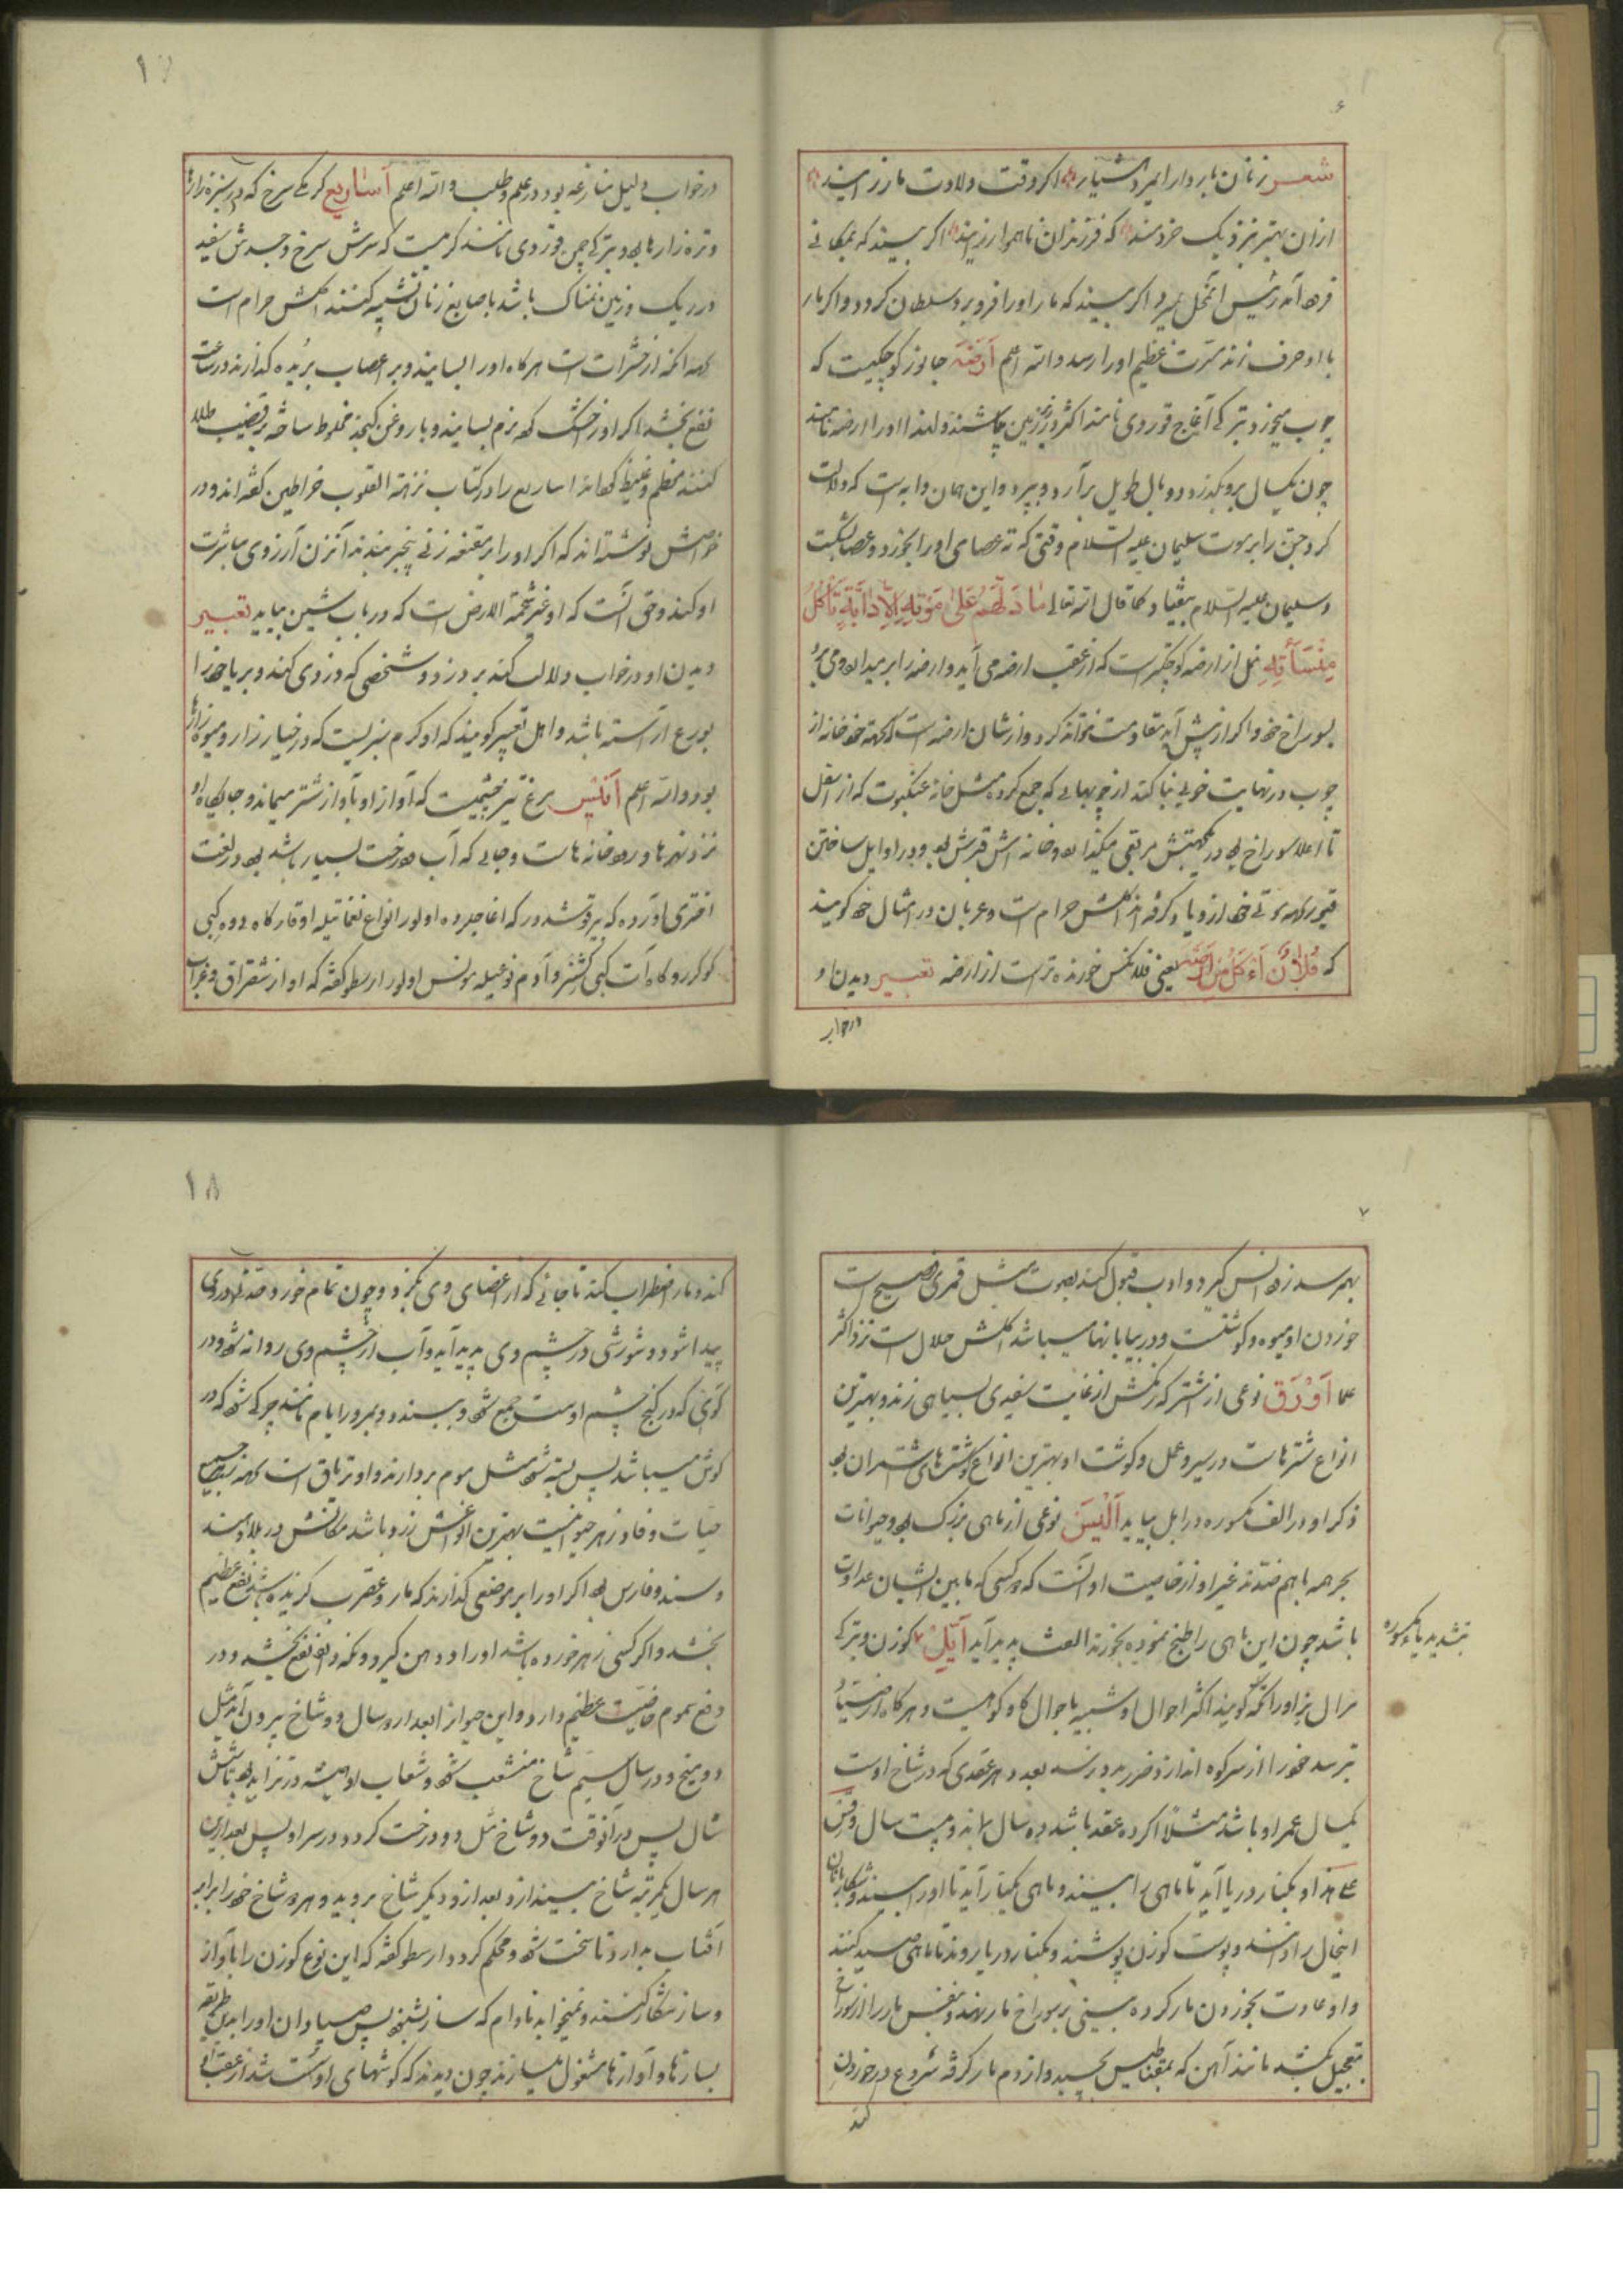 شعر زنان باردار ای مرد هشیار اگر وقت ولادت مار زایند
از آن بهتر بنزدیک خردمند که فرزندان ناهموار زایند اگر بیند که بمکانی
فرود آمد رئیس آنمحل بمیرد اگر بیند که مار او را فرو برد سلطان گردد و اگر مار
با او حرف زند مسرت عظیم او را رسد والله اعلم اَرَضَه جانور کوچکیست که
چوب میخورد و ترکی آغاج قوردی نامند اکثر در زیر زمین باشند و لهذا او را ارضه نامند
چون یکسال برو بگذرد دو بال طویل برآرد و بپرد و این همان دابه است که دلالت
کرد جن را بر موت سلیمان علیه السلام وقتی که ته عصای او را بخورد و عصا بشکست
و سلیمان علیه السلام بیفتاد کما قال الله تعالی مَا دَلَّهُمْ عَلٰی مَوْتِهِ اِلَّا دَابَّةُ الْاَرْضِ تَأْکُلُ
مِنْسَأَتَهُ نمل از ارضه کوچکتر است که از عقب ارضه می آید و ارضه را بر میدارد و می برد
بسوراخ خود و اگر از پیش آید مقاومت نتواند کرد و از شأن ارضه است که بجهة خود خانه از
چوب در نهایت خوبی بنا کند از چوبهایی که جمع کرده مثل خانه عنکبوت که از اسفل
تا اعلا سوراخ
قبور از و یاد گرفته اند اکلش حرام است و عربان در امثال خود گویند
که فُلَانٌ اَءکَلُ مِنَ الْاَرَضَه یعنی فلانکس خورنده تر است از ارضه تعبیر دیدن او
در خواب
در خواب دلیل منازعه بود در علم و طلب والله اعلم اَسَارِیع کرمکی سرخ که در سبزه زارها
و تره زارها بود و ترکی چمن قوردی نامند کرمیست که سرش سرخ و جسدش سفید
در ریک و زمین نمناک باشد باصابع زنان تشبیه کنند اکلش حرام است
از حشرات است هر گاه او را بسایند و بر اعصاب بریده گذارند در ساعت
نفع بخشد و اگر او را خشک کرده نرم بسایند و با روغن کنجد مخلوط ساخته بر قضیب طلا
کنند معظم و غلیظ گرداند اساریع را در کتاب نزهة القلوب خراطین گفته اند و در
خواصش نوشته اند که اگر او را بر مقنعه زنی بیخبر ببندند آنزن آرزوی مباشرت
او کند و حق آنست که او غیر شحمة الارض است که در باب شین بیاید تعبیر
دیدن او در خواب دلالت کند بر دزد و شخصی که دزدی کند و بر یا خود را
بورع آراسته باشد و اهل تعبیر گویند که او کرم سبزیست که در خیارزار و میوه زارها
بود والله اعلم اَنِیس مرغ تیز چشمیست که آواز او بآواز شتر میماند و جایگاه او
نزد نهرها و رودخانه هاست و جایی که آب و درخت بسیار باشد بود در لغت
اختری آورده که بر قوشدر که اغاجلرده اولور انواع نغماتیله اوقار گاه دوه کبی
کوکرر و گاه آت کبی کشنر و آدم نوعیله مونس اولور ارسطو گفته که او از شقراق و غراب
بهم رسد زود انس گیرد و ادب قبول کند بصوت مثل قمری فصیح است
خوردن او میوه و گوشتست و در بیابانها میباشد اکلش حلال است نزد اکثر
علما اَوْرَق نوعی از شتر که رنگش از غایت سفیدی بسیاهی زند و بهترین
انواع شترهاست در سیر و عمل و گوشت او بهترین انواع گوشتهای شتران بود
ذکر او در الف مکسوره در ابل بیاید اَلْیَس نوعی از ماهی بزرگ بود و حیوانات
بحر همه با هم ضدند غیر او از خاصیت او آنست که دو کسی که مابین ایشان عداوت
باشد چون این ماهی را طبخ نموده بخورند الفت پدید آید اَیِّل گوزن و ترکی
مرال اکثر احوال او شبیه باحوال گاو کوهیست و هر گاه از صیاد
بترسد خود را از سر کوه اندازد ضرر بدو نرسد بعدد هر عقدی که در شاخ اوست
یکسال عمر او باشد مثلا اگر ده عقد باشد ده سال و بیست سال و قس
علی هذا او بکنار دریا آید تا ماهی را ببیند و ماهی بکنار آید تا او را ببیند و شکاربانان
اینحال را دانند و پوست گوزن پوشند و بکنار دریا روند تا ماهی صید کنند
و او عادت بخوردن مار کرده بینی بر سوراخ مار نهد و بنفس مار را از سوراخ
بتعجیل بکشد مانند آهن که بمقناطیس بچسبد و از دم مار گرفته شروع در خوردن
بتشدید یاء مکسوره
کند
کند و مار اضطراب کند تا جائی که از اعضای وی بگزد و چون تمام خورد
پیدا شود و شورشی در چشم وی پدید آید و آب از چشم وی روانه شود در
گوی که در کنج چشم اوست جمع شود و ببندد و بمرور ایام مانند چرکی شود که در
گوش میباشد پس بسته شود مثل موم بردارند و او تریاق است
حیات و فادزهر حیوانیست بهترین انواعش زرد باشد مکانش در بلاد هند
و سند و فارس بود اگر او را بر موضعی گذارند که مار و عقرب گزیده باشد نفع عظیم
بخشد و اگر کسی زهر خورده باشد او را در دهن گیرد و بمکد نفع بخشد و در
دفع سموم خاصیت عظیم دارد و این حیوان را بعد از دو سال دو شاخ بیرون آید مثل
دو میخ و در سال سیم شاخ منشعب شود و شعاب او همیشه در تزاید بود تا شش
سال پس در آنوقت دو شاخ مثل دو درخت گردد در سر او پس بعد ازین
هر سال یکمرتبه شاخ بیندازد و بعد ازو دیگر شاخ بروید و هر دو شاخ خود را برابر
آفتاب بدارد تا سخت شود و محکم گردد ارسطو گفته که این نوع گوزن را با آواز
و ساز شکار کنند و نمیخوابد مادام که ساز بشنود پس صیادان او را بدین طریقه
بسازها و آوازها مشغول میسازند چون دیدند که گوشهای او سست شد از عقب